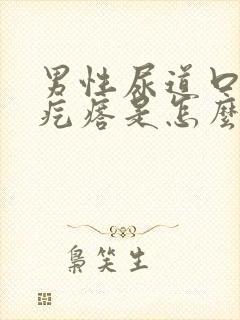 男性尿道口
疙瘩是怎麼
梟笑生